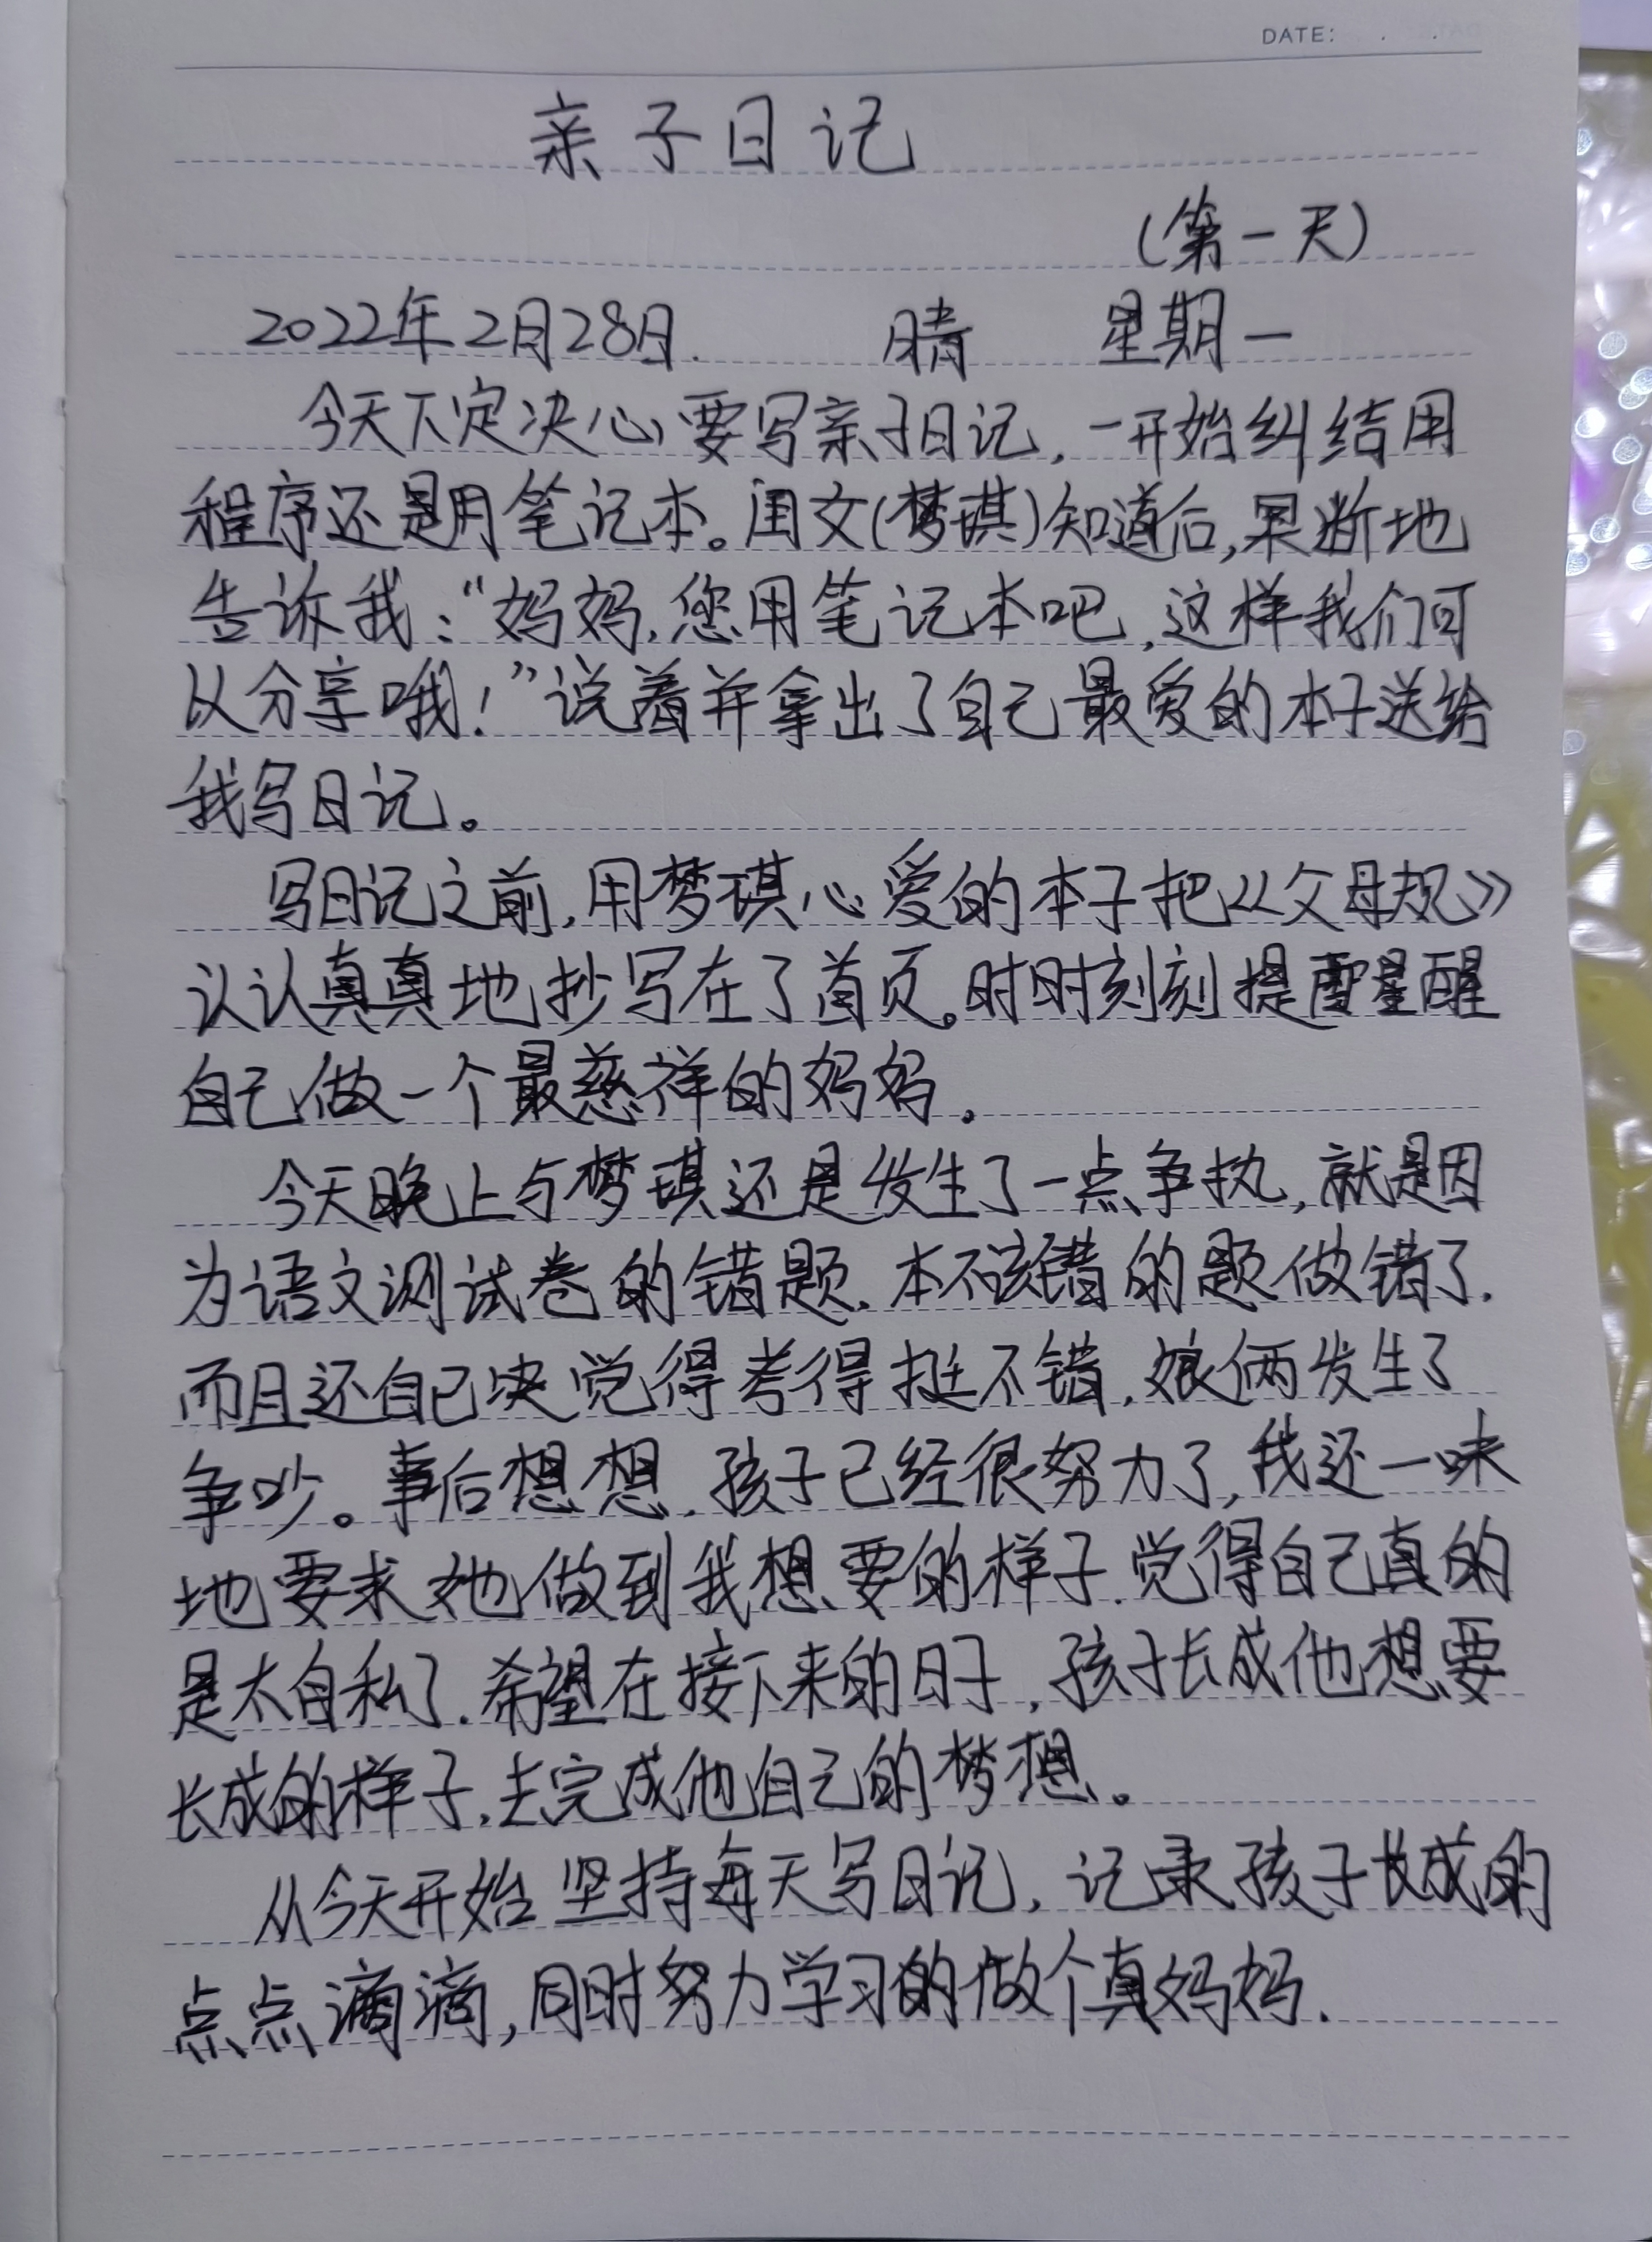 DATE:
亲子日记
(第一天)
2022年2月28日. 晴 星期一
今天下定决心要写亲子日记,一开始纠结用
程序还是用笔记本。闺文(梦琪)知道后,果断地
告诉我:“妈妈,您用笔记本吧,这样我们可
以分享哦!”说着并拿出了自己最爱的本子送给
我写日记。
写日记之前,用梦琪心爱的本子把《父母规》
认认真真地抄写在了首页。时时刻刻提醒
自己做一个最慈祥的妈妈.
今天晚上与梦琪还是发生了一点争执,就是因
为语文测试卷的错题.本不该错的题做错了.
而且还自己决觉得考得挺不错.娘俩发生了
争吵。事后想想.孩子已经很努力了,我还一味
地要求她做到我想要的样子.觉得自己真的
是太自私了.希望在接下来的日子,孩子长成他想要
长成的样子.去完成他自己的梦想。
从今天开始坚持每天写日记,记录孩子长成的
点点滴滴,同时努力学习的做个真妈妈.